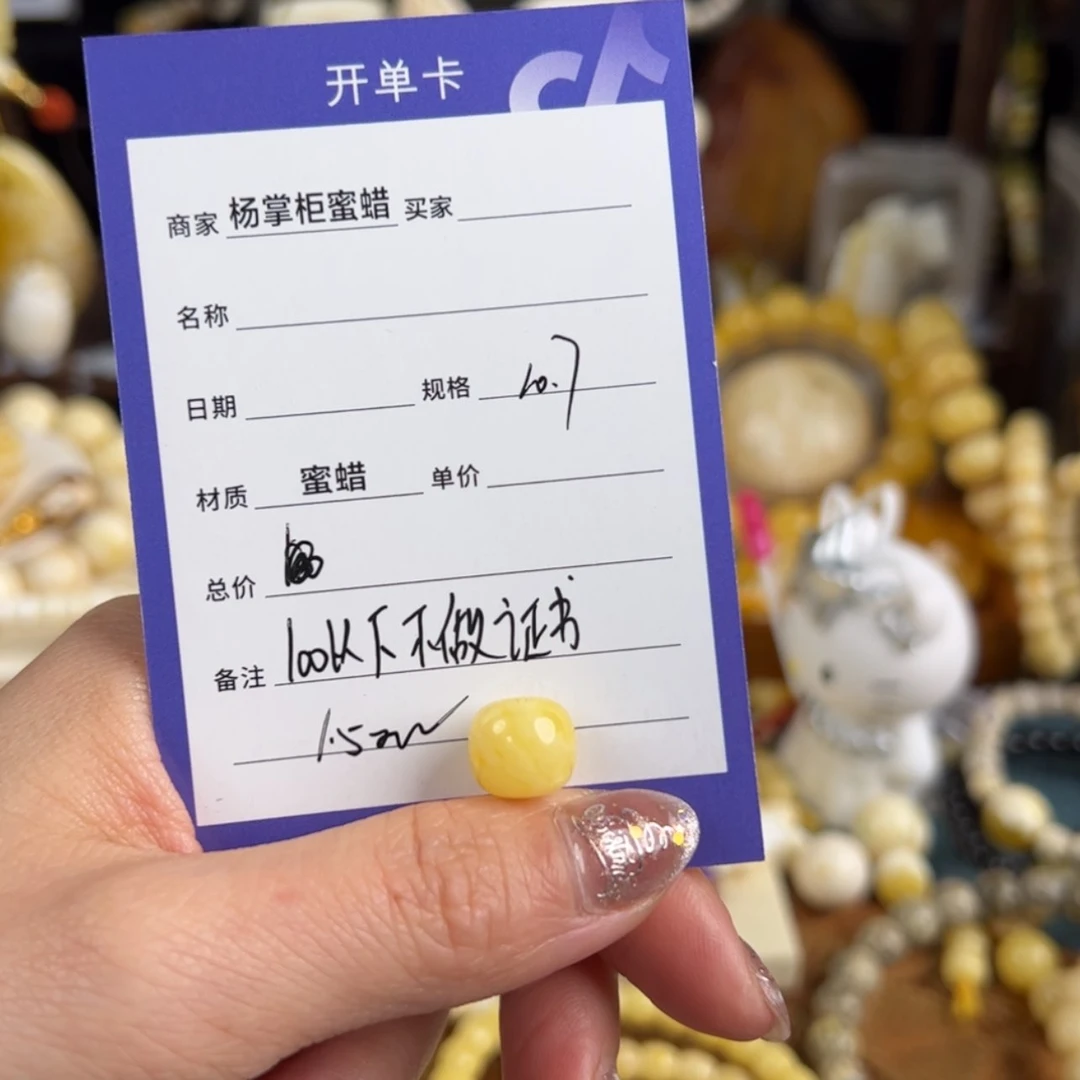 开单卡
商家 杨掌柜蜜蜡 买家
名称
日期 规格 10.7
材质 蜜蜡 单价
总价
备注 100以下不做证书
1.5